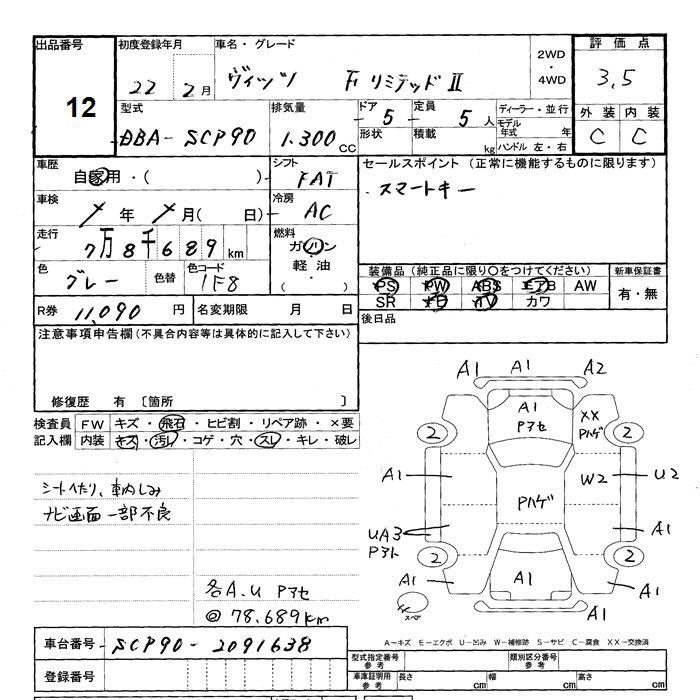 出品番号
12
初度登録年月
22 2月
車名・グレード
ヴィッツ F リミテッドⅡ
2WD
・
4WD
評価点
3.5
外装 内装
C C
型式
DBA-SCP90
排気量
1.300cc
ドア 5
形状
定員 5人
積載 kg
ディーラー・並行
モデル年式 年
ハンドル 左・右
車歴
自家用・( )
シフト
FAT
セールスポイント (正常に機能するものに限ります)
スマートキー
車検
年 月( 日)
冷房
AC
走行
7万8千689km
燃料
ガソリン
軽油
( ・ )
色
グレー
色替
色コード
1F8
装備品 (純正品に限り○をつけてください)
PS PW ABS エアB AW
SR TV カワ
新車保証書
有・無
R券 11,090円
名変期限 月 日
後日品
注意事項申告欄 (不具合内容等は具体的に記入して下さい)
修復歴 有 〔箇所 〕
検査員記入欄
FW キズ・飛石・ヒビ割・リペア跡・×要
内装 キズ・汚レ・コゲ・穴・スレ・キレ・破レ
シートへたり、車内しみ
ナビ画面一部不良
各A.U Pアセ
@ 78.689km
A1 A1 A2
A1 Pアセ
XX Pハゲ
2 2
A1 W2 U2
Pハゲ
UA3 Pアト
A1
2 2
A1 A1 A1
スペア
A1
A-キズ E-エクボ U-凹み W-補修跡 S-サビ C-腐食 XX-交換済
車台番号 SCP90-2091638
登録番号
型式指定番号 参考
類別区分番号 参考
車庫証明用 参考
長さ cm
幅 cm
高さ cm